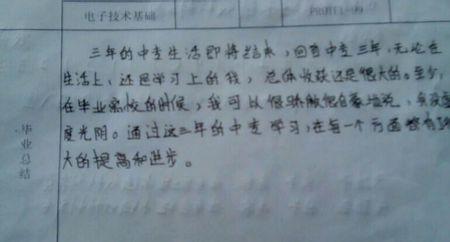 电子技术基础 PROTEL-99
三年的中专生活即将结束，回首中专三年，无论在
生活上、还是学习上的我，总体收获还是很大的。至少，
在毕业离校的时候，我可以很骄傲很自豪地说，我没虚
度光阴。通过这三年的中专学习，在每一个方面都有了较
大的提高和进步。
毕业总结